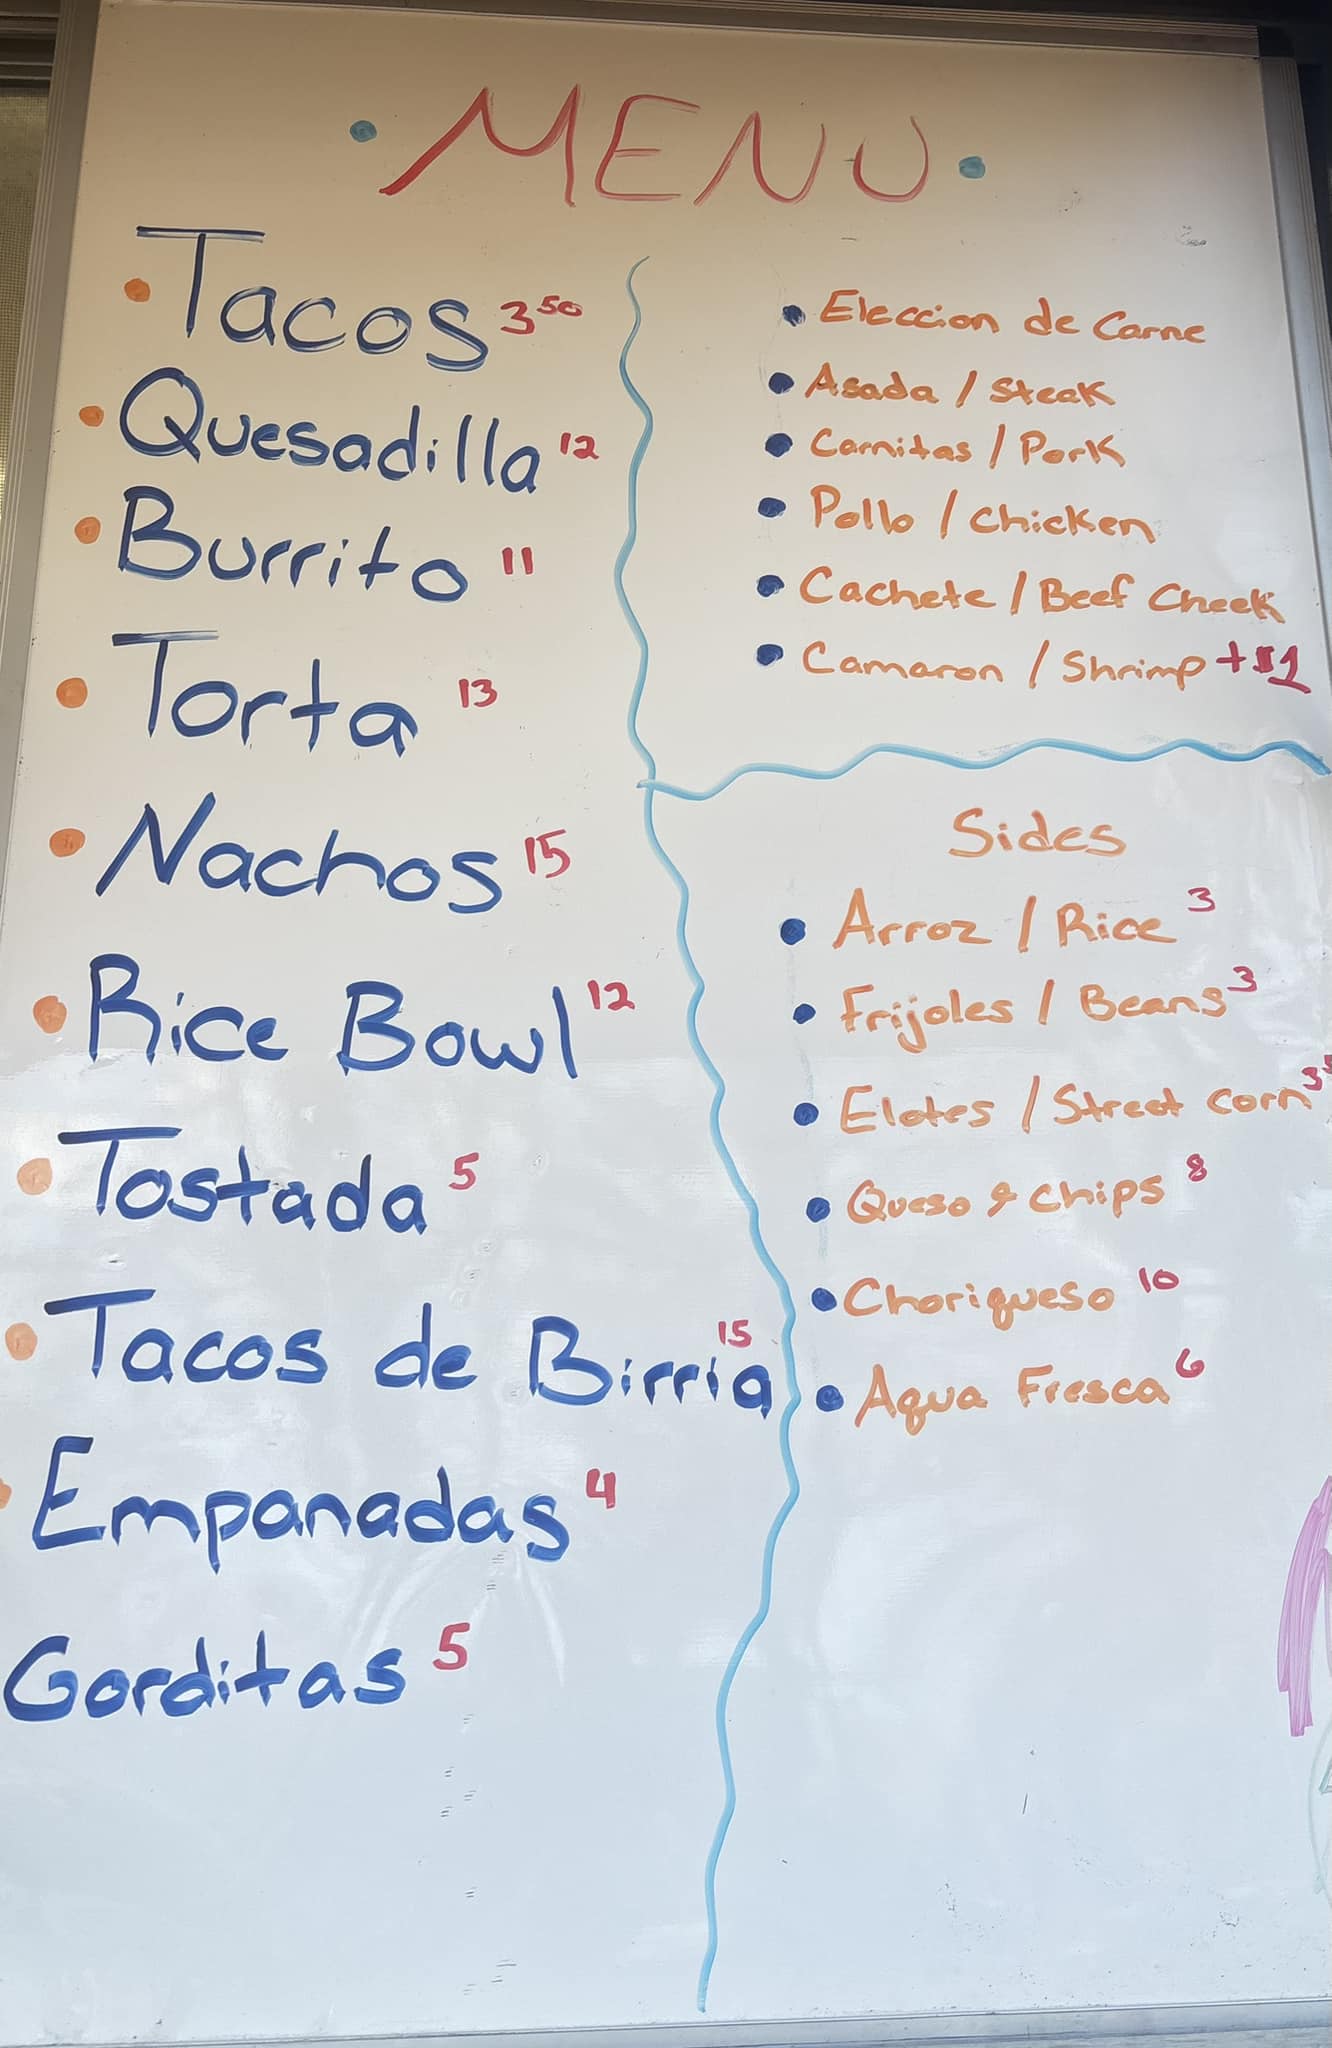 MENU
Tacos 3 50
Quesadilla 12
Burrito 11
Torta 13
Nachos 15
Rice Bowl 12
Tostada 5
Tacos de Birria 15
Empanadas 4
Gorditas 5
Eleccion de Carne
Asada / Steak
Carnitas / Pork
Pollo / Chicken
Cachete / Beef Cheek
Camaron / Shrimp + $1
Sides
Arroz / Rice 3
Frijoles / Beans 3
Elotes / Street corn
Queso & Chips 8
Choriqueso 10
Aqua Fresca 6